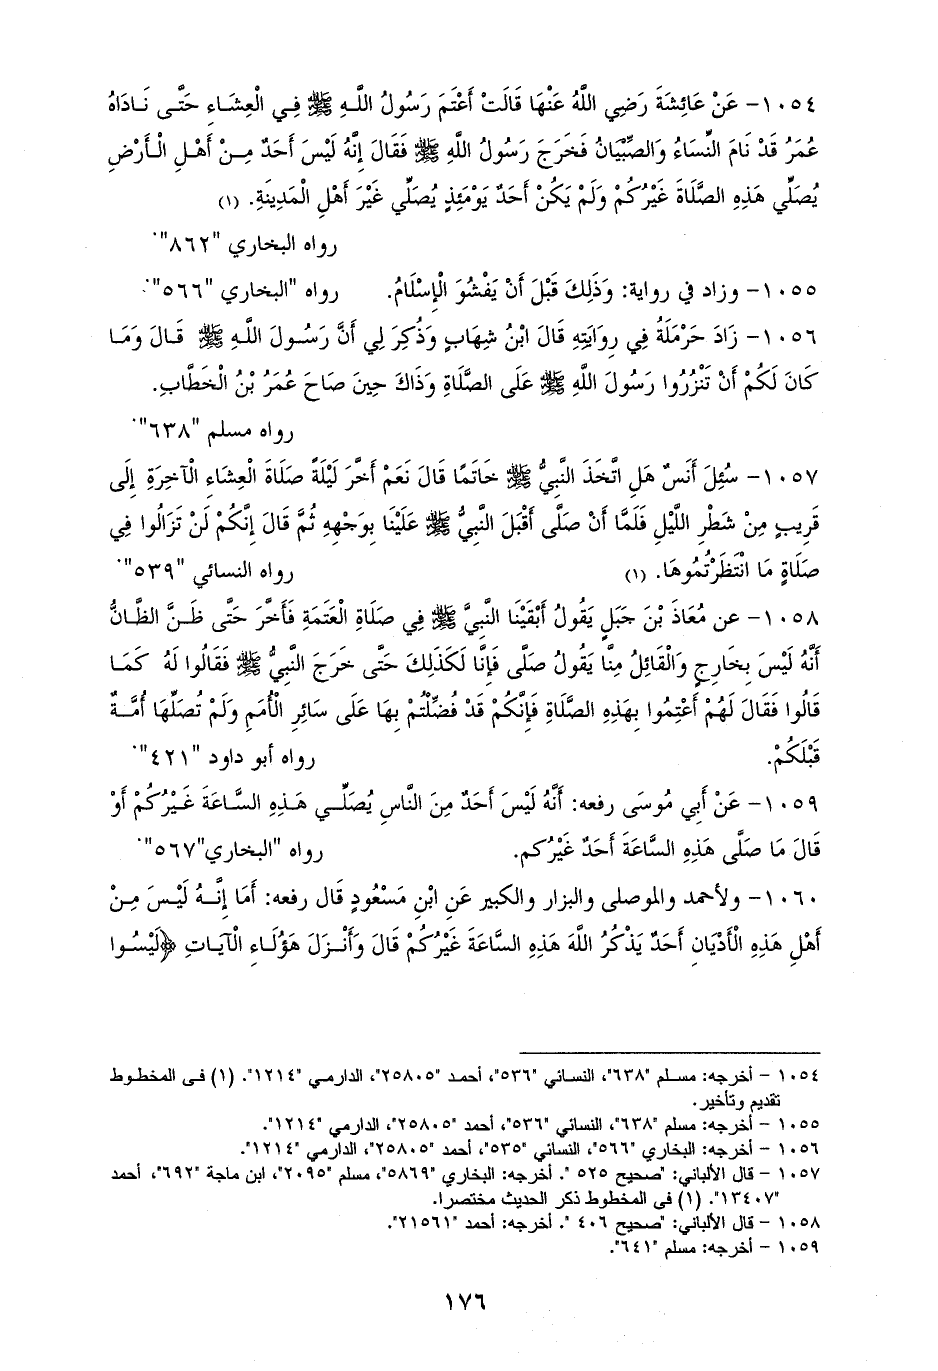 ١٠٥٤- عَنْ عَائِشَةَ رَضِي اللَّهُ عَنْهَا قَالَتْ أَعْتَمَ رَسُولُ اللَّهِ ﷺ فِي الْعِشَاءِ حَتَّى نَادَاهُ
عُمَرُ قَدْ نَامَ النِّسَاءُ وَالصِّبْيَانُ فَخَرَجَ رَسُولُ اللَّهِ ﷺ فَقَالَ إِنَّهُ لَيْسَ أَحَدٌ مِنْ أَهْلِ الْأَرْضِ
يُصَلِّي هَذِهِ الصَّلَاةَ غَيْرُكُمْ وَلَمْ يَكُنْ أَحَدٌ يَوْمَئِذٍ يُصَلِّي غَيْرَ أَهْلِ الْمَدِينَةِ. (١)
رواه البخاري "٨٦٢".
١٠٥٥- وزاد في رواية: وَذَلِكَ قَبْلَ أَنْ يَفْشُوَ الْإِسْلَامُ. رواه "البخاري "٥٦٦".
١٠٥٦- زَادَ حَرْمَلَةُ فِي رِوَايَتِهِ قَالَ ابْنُ شِهَابٍ وَذُكِرَ لِي أَنَّ رَسُولَ اللَّهِ ﷺ قَالَ وَمَا
كَانَ لَكُمْ أَنْ تَنْزُرُوا رَسُولَ اللَّهِ ﷺ عَلَى الصَّلَاةِ وَذَاكَ حِينَ صَاحَ عُمَرُ بْنُ الْخَطَّابِ.
رواه مسلم "٦٣٨".
١٠٥٧- سُئِلَ أَنَسٌ هَلِ اتَّخَذَ النَّبِيُّ ﷺ خَاتَمًا قَالَ نَعَمْ أَخَّرَ لَيْلَةً صَلَاةَ الْعِشَاءِ الْآخِرَةِ إِلَى
قَرِيبٍ مِنْ شَطْرِ اللَّيْلِ فَلَمَّا أَنْ صَلَّى أَقْبَلَ النَّبِيُّ ﷺ عَلَيْنَا بِوَجْهِهِ ثُمَّ قَالَ إِنَّكُمْ لَنْ تَزَالُوا فِي
صَلَاةٍ مَا انْتَظَرْتُمُوهَا. (١) رواه النسائي "٥٣٩".
١٠٥٨- عن مُعَاذَ بْنَ جَبَلٍ يَقُولُ أَبْقَيْنَا النَّبِيَّ ﷺ فِي صَلَاةِ الْعَتَمَةِ فَأَخَّرَ حَتَّى ظَنَّ الظَّانُّ
أَنَّهُ لَيْسَ بِخَارِجٍ وَالْقَائِلُ مِنَّا يَقُولُ صَلَّى فَإِنَّا لَكَذَلِكَ حَتَّى خَرَجَ النَّبِيُّ ﷺ فَقَالُوا لَهُ كَمَا
قَالُوا فَقَالَ لَهُمْ أَعْتِمُوا بِهَذِهِ الصَّلَاةِ فَإِنَّكُمْ قَدْ فُضِّلْتُمْ بِهَا عَلَى سَائِرِ الْأُمَمِ وَلَمْ تُصَلِّهَا أُمَّةٌ
قَبْلَكُمْ. رواه أبو داود "٤٢١".
١٠٥٩- عَنْ أَبِي مُوسَى رفعه: أَنَّهُ لَيْسَ أَحَدٌ مِنَ النَّاسِ يُصَلِّي هَذِهِ السَّاعَةَ غَيْرُكُمْ أَوْ
قَالَ مَا صَلَّى هَذِهِ السَّاعَةَ أَحَدٌ غَيْرُكم. رواه "البخاري"٥٦٧".
١٠٦٠- ولأحمد والموصلى والبزار والكبير عَنِ ابْنِ مَسْعُودٍ قَال رفعه: أَمَا إِنَّهُ لَيْسَ مِنْ
أَهْلِ هَذِهِ الْأَدْيَانِ أَحَدٌ يَذْكُرُ اللَّهَ هَذِهِ السَّاعَةَ غَيْرُكُمْ قَالَ وَأَنْزَلَ هَؤُلَاءِ الْآيَاتِ ﴿لَيْسُوا
١٠٥٤ - أخرجه: مسلم "٦٣٨"، النسائي "٥٣٦"، أحمد "٢٥٨٠٥"، الدارمي "١٢١٤". (١) فى المخطوط
تقديم وتأخير.
١٠٥٥ - أخرجه: مسلم "٦٣٨"، النسائي "٥٣٦"، أحمد "٢٥٨٠٥"، الدارمي "١٢١٤".
١٠٥٦ - أخرجه: البخاري "٥٦٦"، النسائي "٥٣٥"، أحمد "٢٥٨٠٥"، الدارمي "١٢١٤".
١٠٥٧ - قال الألباني: "صحيح ٥٢٥ ". أخرجه: البخاري "٥٨٦٩"، مسلم "٢٠٩٥"، ابن ماجة "٦٩٢"، أحمد
"١٣٤٠٧". (١) فى المخطوط ذكر الحديث مختصرا.
١٠٥٨ - قال الألباني: "صحيح ٤٠٦ ". أخرجه: أحمد "٢١٥٦١".
١٠٥٩ - أخرجه: مسلم "٦٤١".
١٧٦